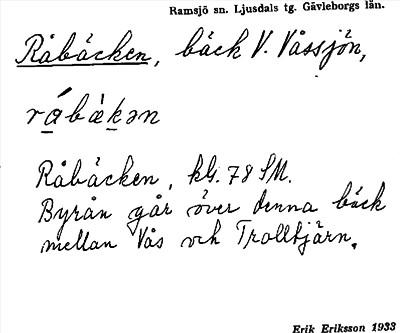 Ramsjö sn. Ljusdals tg. Gävleborgs län.
Råbäcken, bäck V. Våssjön,
råbäkən
Råbäcken, kbl. 78 SM.
Byrån går över denna bäck
mellan Vås och Trolltjärn.
Erik Eriksson 1933